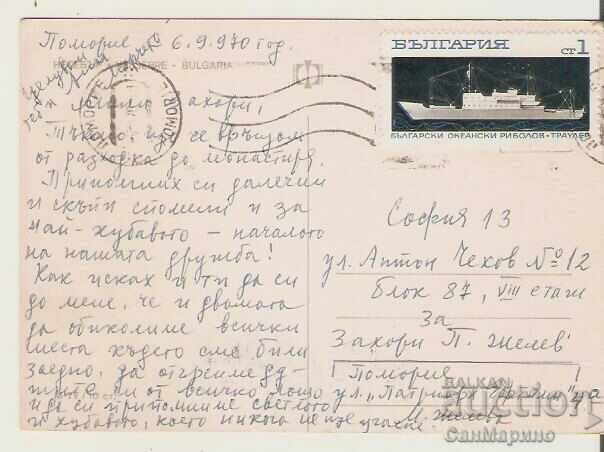 Поморие 6.9.970 год.
BULGARIA
Захори,
Тъкмо що се връщам
от разходка до монастиря.
Припомних си далечни
и скъпи спомени и за
най-хубавото – началото
на нашата дружба!
Как исках и ти да си
до мене, че и двамата
да обиколиме всички
места където сме били
заедно, да откъснеме
от всичко
и да си припомниме светлото
и хубавото, което никога не ще угасне.
БЪЛГАРИЯ ст 1
БЪЛГАРСКИ ОКЕАНСКИ РИБОЛОВ-ТРАУЛЕР
ПОМОРИЕ
София 13
ул. Антон Чехов № 12
Блок 87, VIII етаж
За
Захори П. Желев
Поморие
ул. „Патриарх
Желев
BALKAN
auction
СанМарино